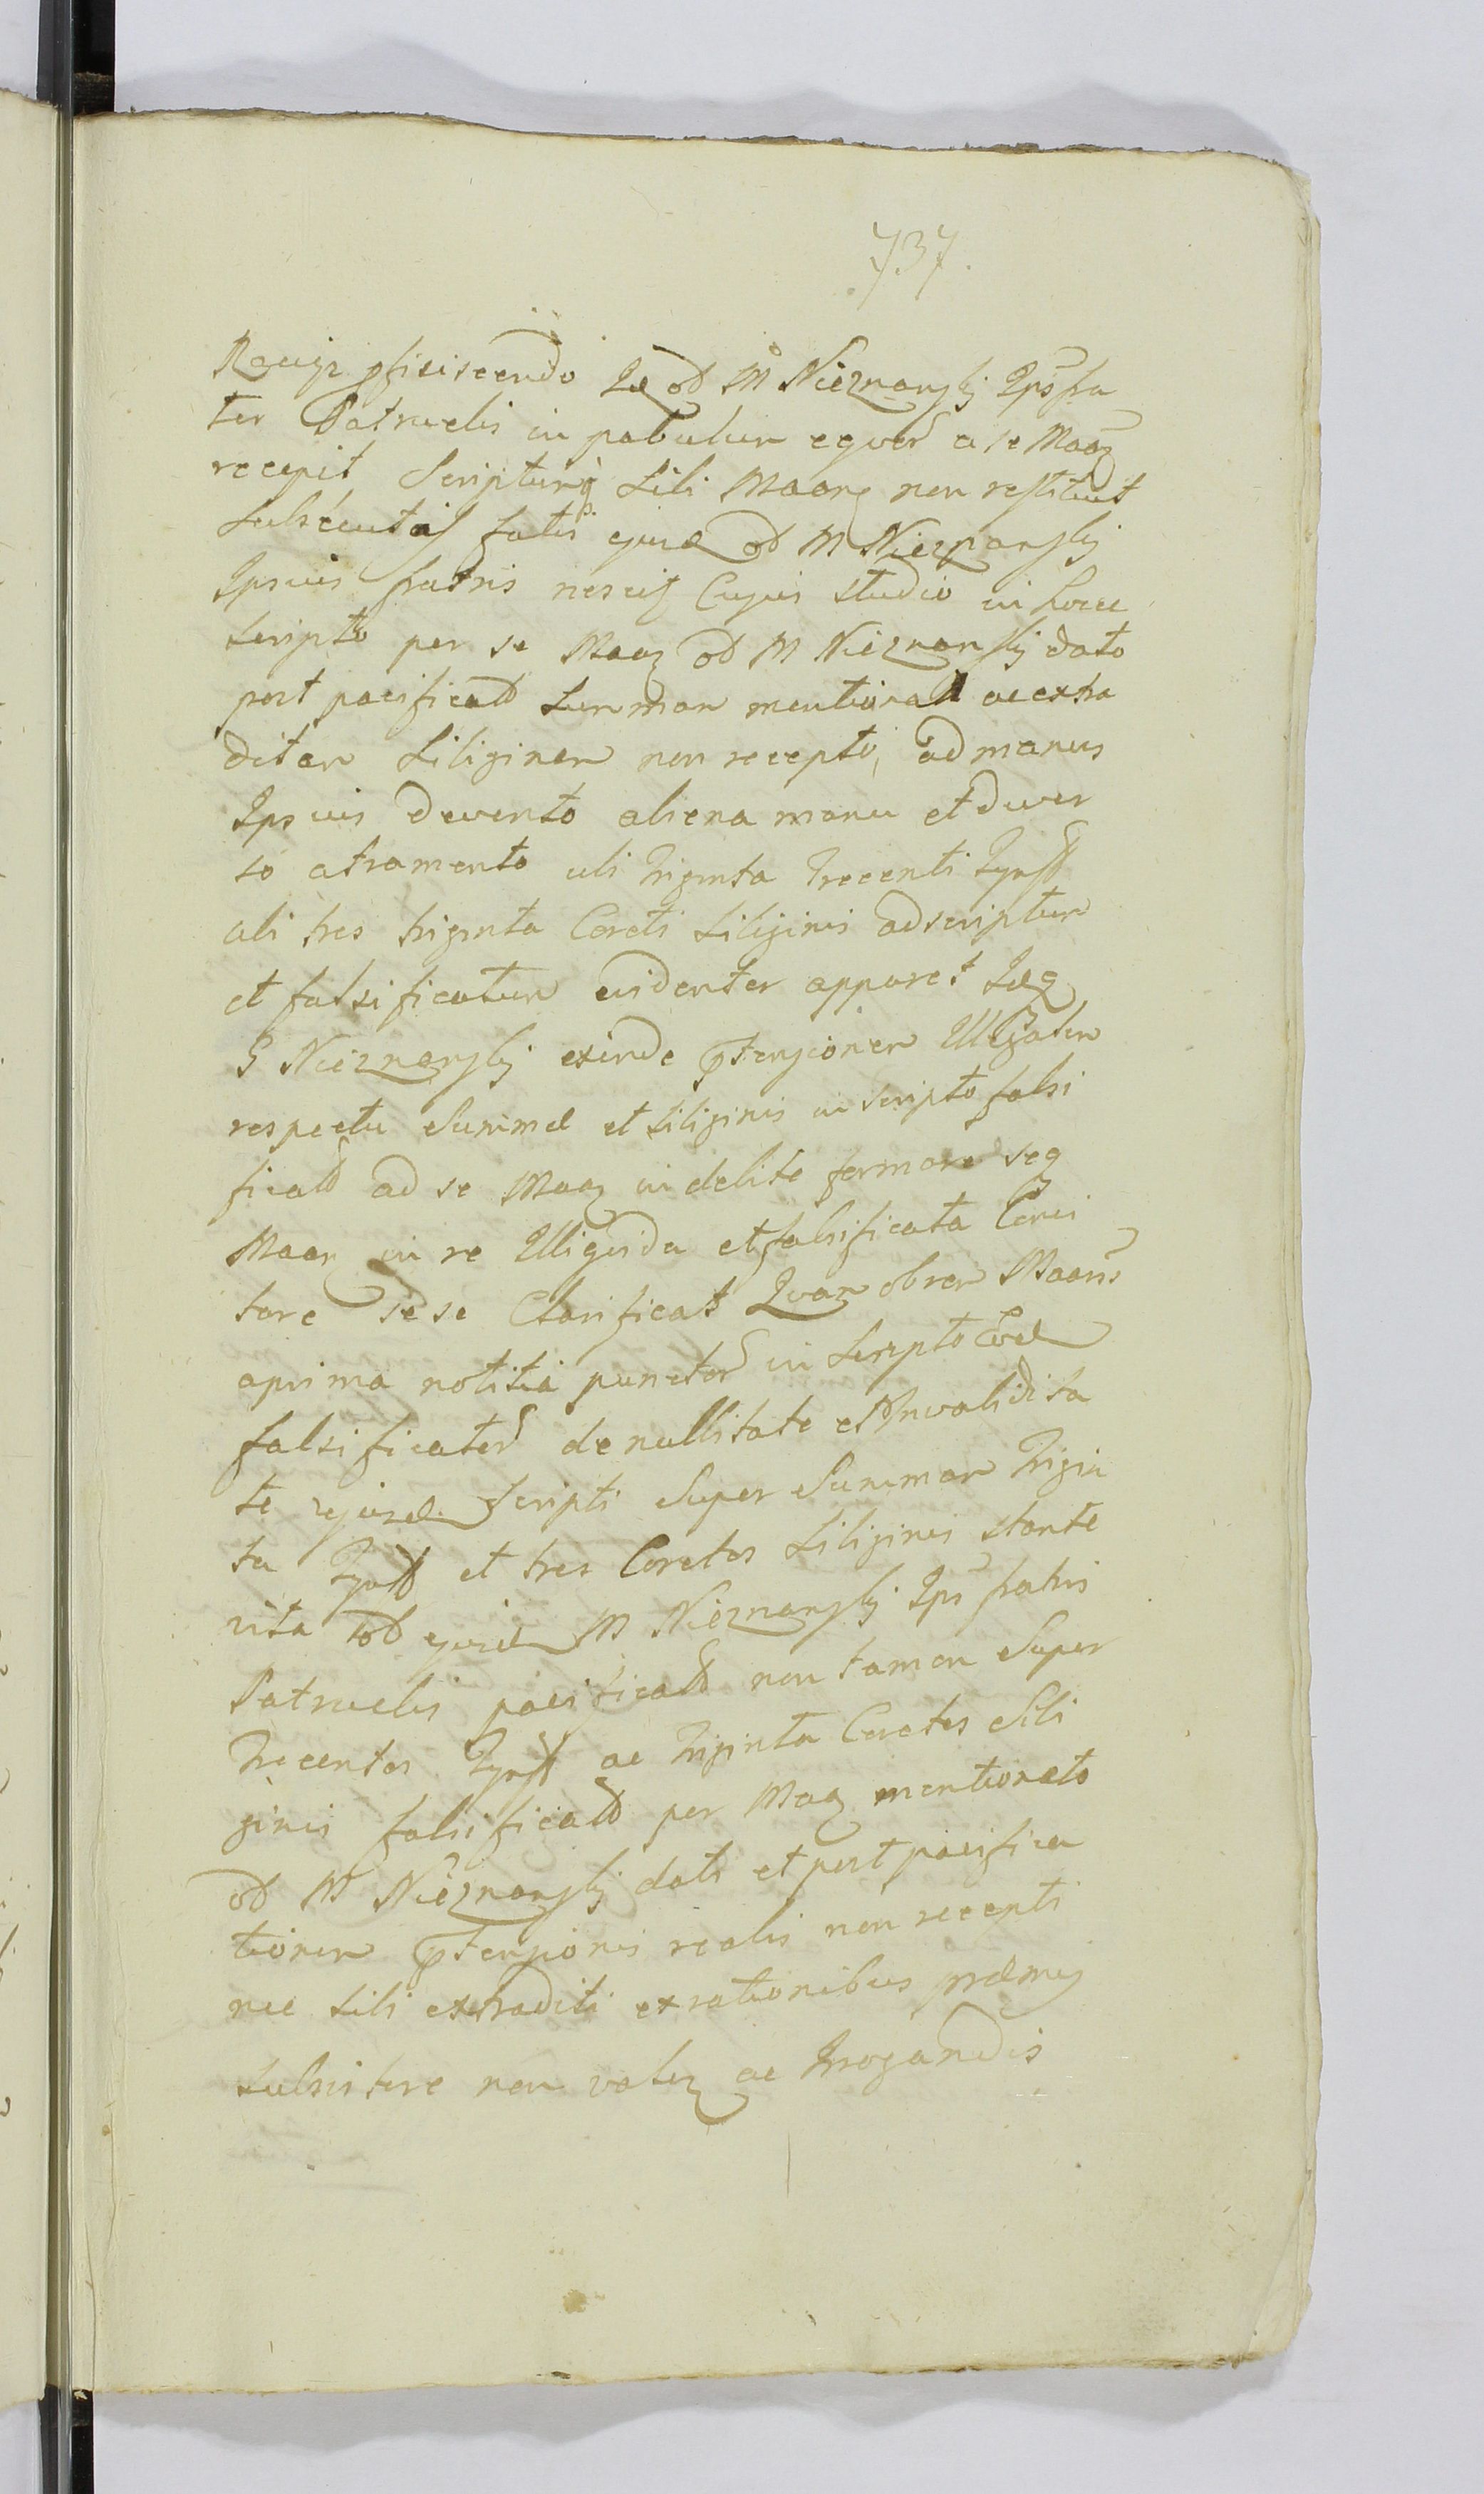 737.
proficiscendo M Nieznansky Ips fra
ter Patruelis in pabulum equor a se Maaz
recepit Scriptumq sibi Maare non restituit
Subsecutis fatis ejusd od M Nieznansky
Ipsius fratris nescit Cujus studio in hocce
scripto per se Maaz od M Nieznansky dato
post pacificatt Summam mentionatt ac extra
ditam Siliginem non recepto, ad manus
Ipsius devento aliena manu et diver
so atramento ubi Triginta Trecenti Tynff
ubi tres triginta Coreti Siliginis adscriptum
et falsificatum evidenter apparet
G Nieznansky exinde ptensionem Illigatam
respectu Summæ et Siliginis in scripto falsi
ficatt ad se Maaz indebite formare seq
Maaz in re Illiquida et falsificata Convi
tare sese Clarificat Quam obrem Maans
a prima notitia punctor in Scripto Eod
falsificator de nullitate et Invalidita
te ejusd Scripti Super Summam Trigin
ta Tynff et tres Coretos Siliginis stante
vita od ejusd M Nieznansky Ips fratris
Patruelis pacificatt non tamen Super
Trecentos Tynff ac Triginta Coretos Sili
ginis falsificatt per Maaz mentionato
od M Nieznansky dati et post pacifica
tionem ptensionis realis non recepti
nec sibi extraditi ex rationibus præmis
subsistere non valen ac Irrogandis